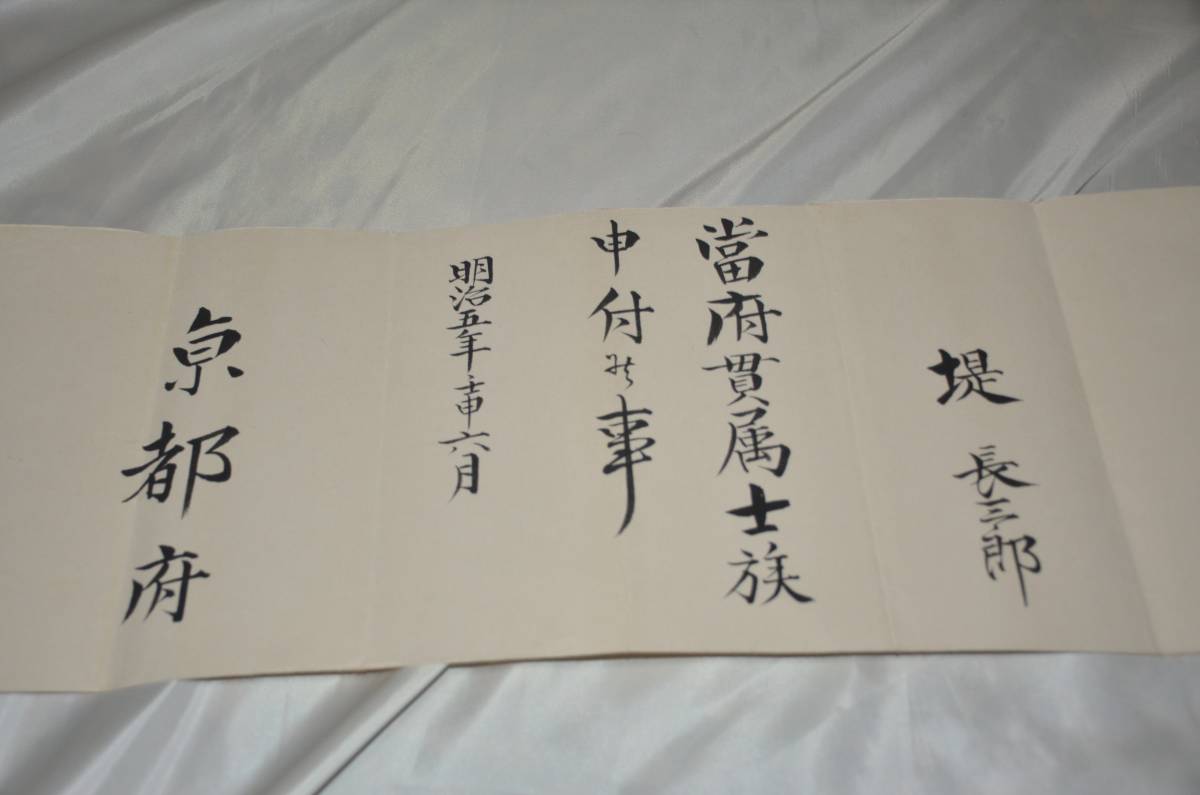 堤 長三郎
當府貫属士族
申付候事
明治五年壬申六月
亰都府